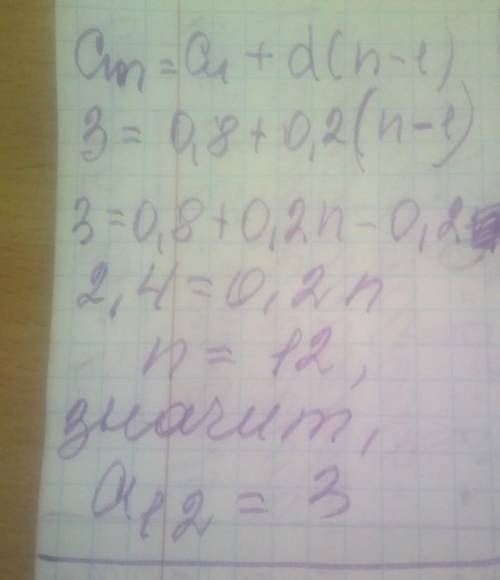 an = a1 + d(n-1)
3 = 0,8 + 0,2(n-1)
3 = 0,8 + 0,2n - 0,2
2,4 = 0,2n
n = 12,
значит,
a12 = 3